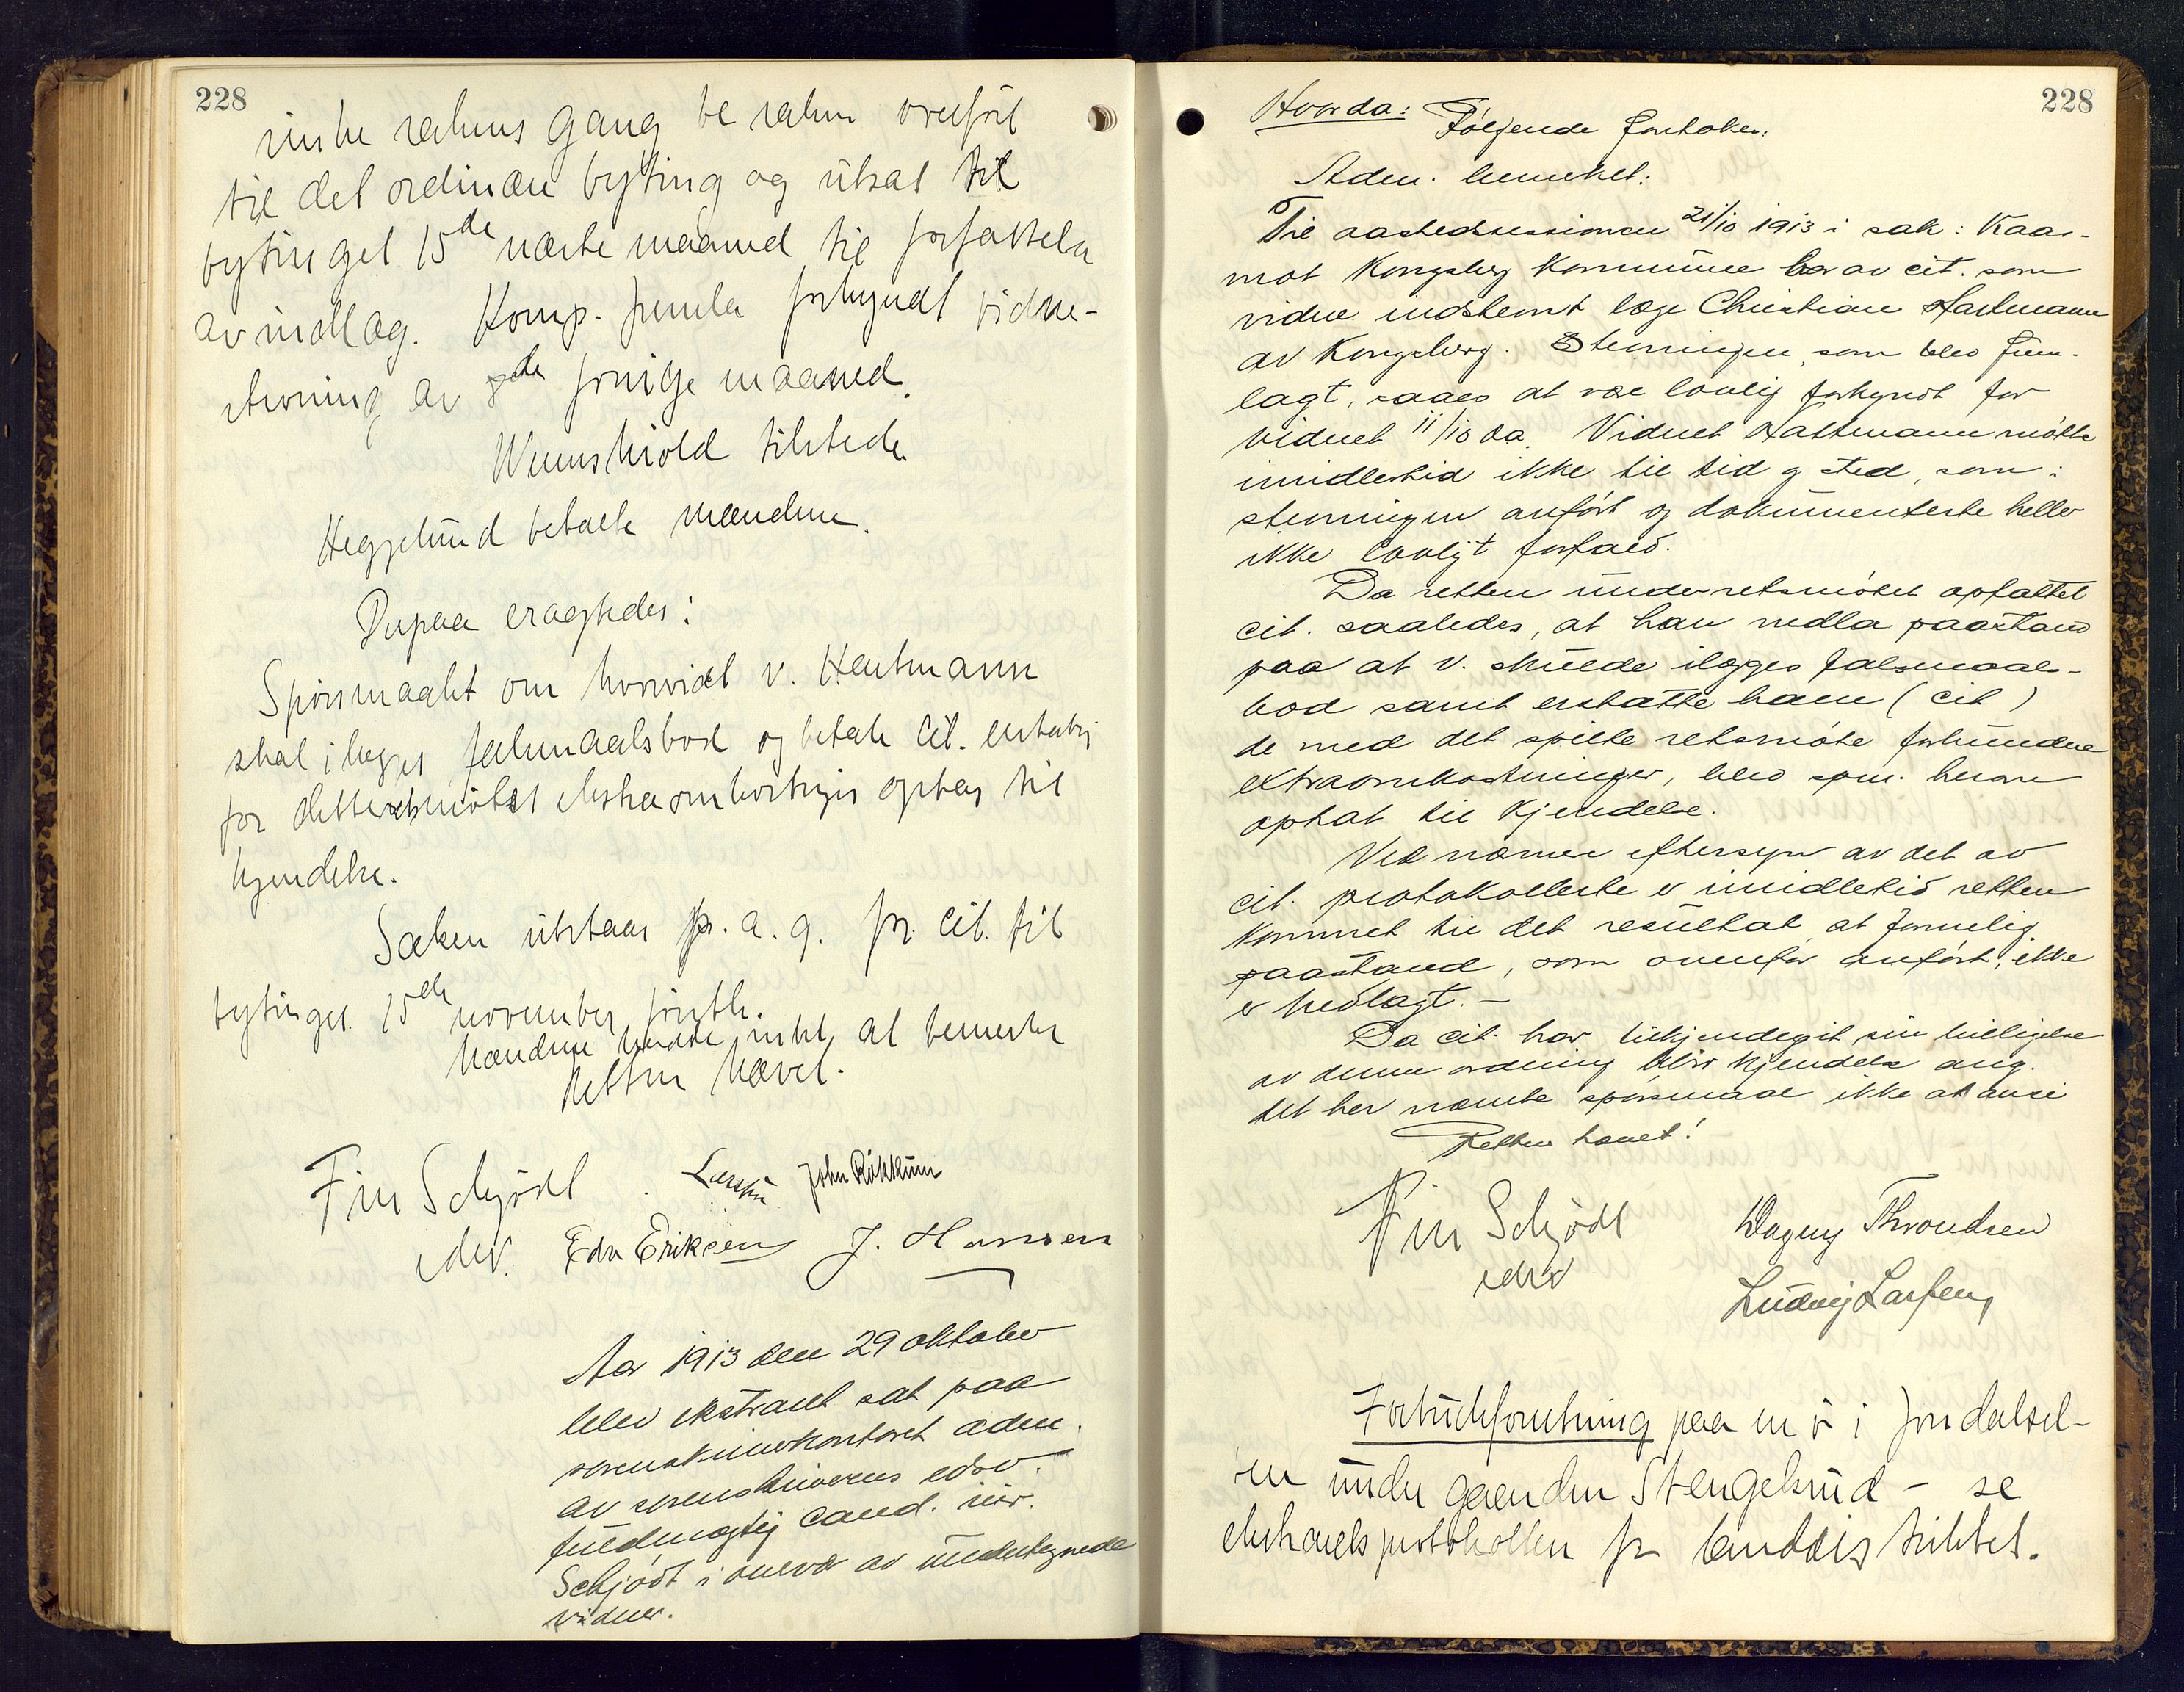 228
rette sakens gang be saken overført
til det ordinære byting og utsat til
bytinget 15de næste maaned til forfattelse
av indlæg. Komp. fremla forkyndt vidne-
stevning av de forrige maaned.
Wennshiold tilstede.
Heggelund betalte mændene.
Derpaa eragtedes:
Spørsmaalet om hvorvidt v. Hartmann
skal ilægges falsmaalsbod og betale Cit. erstatn
for dette retsmøtet ekstraomkostninger optas til
kjendelse.
Saken utstaar fr. a. g. fr. Cit. til
bytinget 15de november førstk.
Mændene hadde intet at bemerke
Retten hævet.
Finn Schjødt Larsen John Røkkum
edsv. Edv Eriksen J. Hansen
Aar 1913 den 29 oktober
blev ekstraret sat paa
sorenskriverkontoret adm.
av sorenskriverens edsv.
fuldmægtig cand. jur.
Schjødt i overvær av undertegnede
vidner.
228
Hvorda: Følgende foretokes:
Adm. bemerket:
Til aastedssessionen 21/10 1913 i sak: Kaas-
mot Kongsberg Kommune har av cit. som
vidne indstevnt læge Christian Hartmann
av Kongsberg. Stevningen, som blev frem-
lagt, saaes at være lovlig forkyndt for
vidnet 11/10 da. Vidnet Hartmann møtte
imidlertid ikke til tid og sted, som i
stevningen anført og dokumenterte heller
ikke lovligt forfald.
Da retten under retsmøtet opfattet
cit. saaledes, at han nedla paastand
paa at v. skulde ilægges falsmaals-
bod samt erstatte ham (cit)
de med det spilte retsmøte forbundne
extraomkostninger, blev spm. herom
optat til Kjendelse.
Ved nærmere eftersyn av det av
cit. protokollerte er imidlertid retten
kommet til det resultat at formelig
paastand, som ovenfor anført, ikke
er nedlagt. —
Da cit. har tilkjendegit sin billigelse
av denne ordning blir kjendelse ang.
det her nævnte spørsmaal ikke at avsi
Retten hævet!
Finn Schjødt Dagny Throndsen
edsv Ludvig Larsen
Forbudsforretning paa en ø i Jondalsel-
ven under gaarden Stengelsrud - se
ekstraretsprotokollen for landdistriktet.